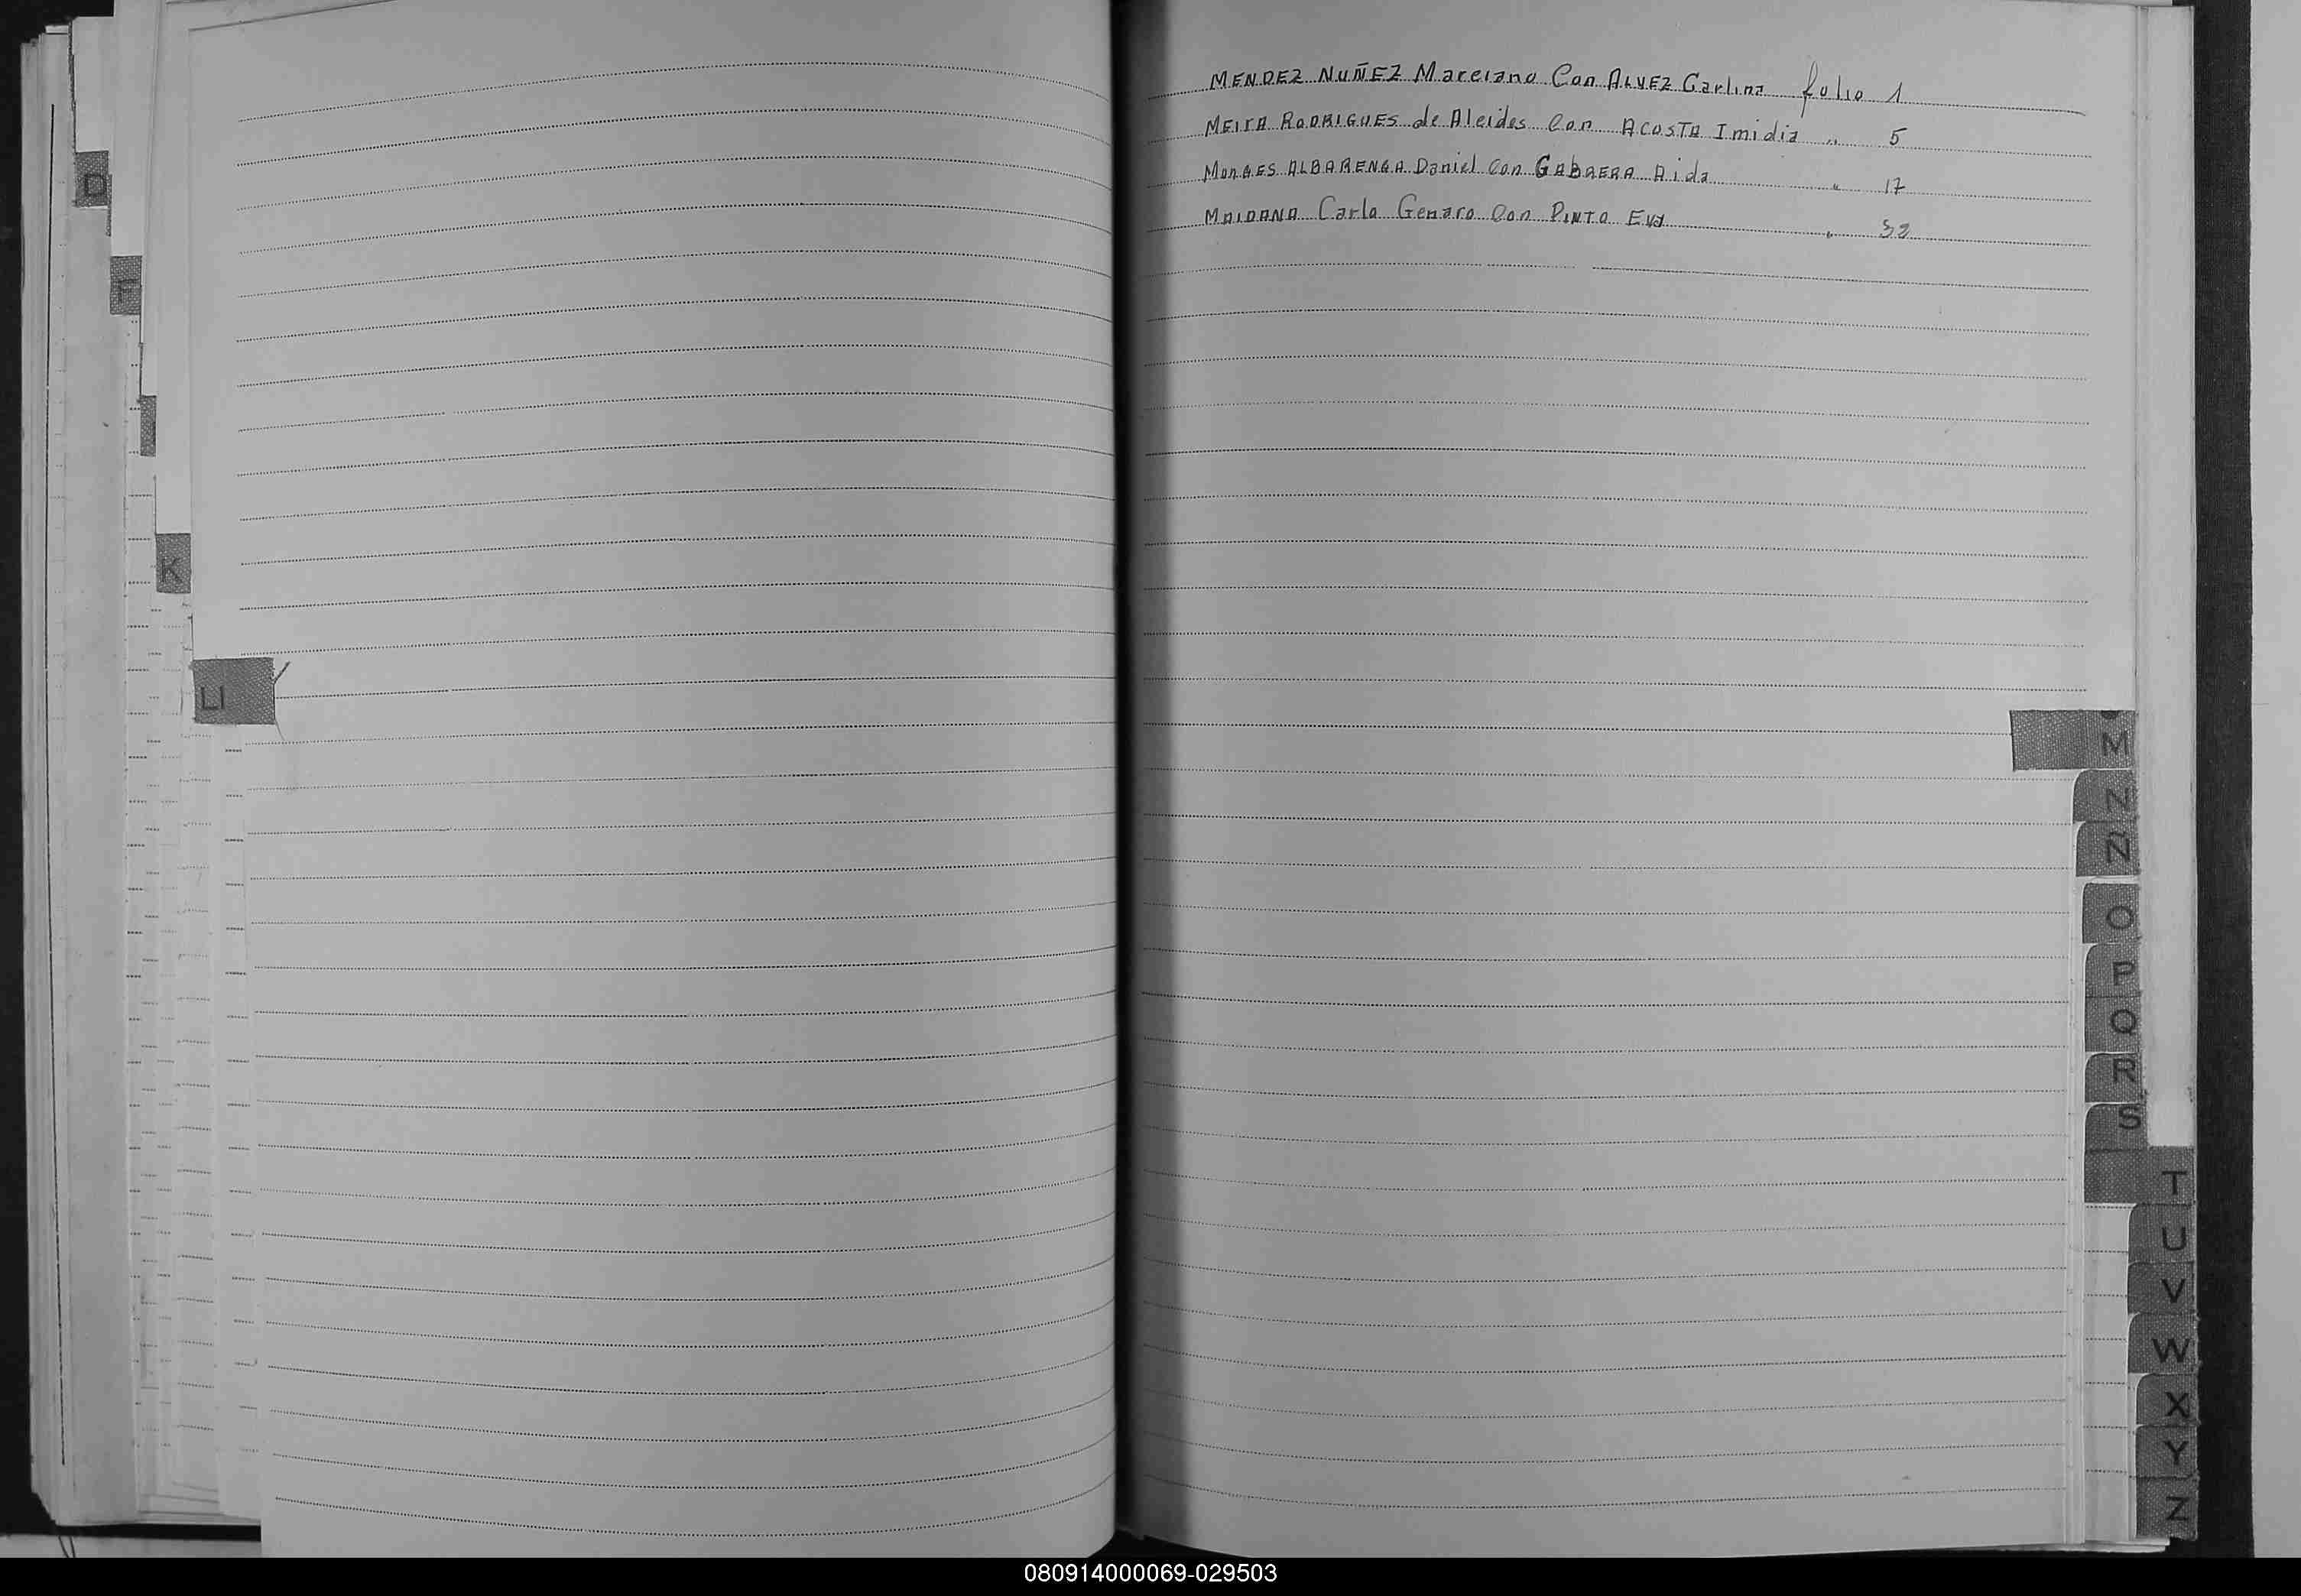 MENDEZ NUÑEZ Marciano Con ALVEZ Carlina folio 1
MEIRA RODRIGUES de Alcides Con ACOSTA Imidia " 5
MONGES ALBARENGA Daniel Con CABRERA Aida " 17
MAIDANA Carlo Genaro Con PINTO Eva " 32
D
F
K
Ll
M
N
Ñ
O
P
Q
R
S
T
U
V
W
X
Y
Z
080914000069-029503